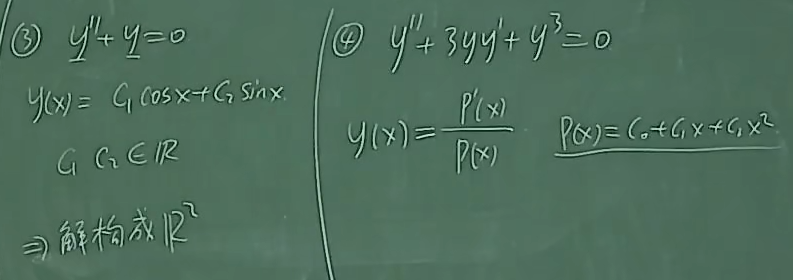 ③ y''+y=0
y(x)= C₁cosx+C₂sinx.
C₁ C₂∈ℝ
⇒解构成ℝ²
④ y''+3yy'+y³=0
y(x)= P'(x)/P(x)
P(x)=C₀+C₁x+C₂x²